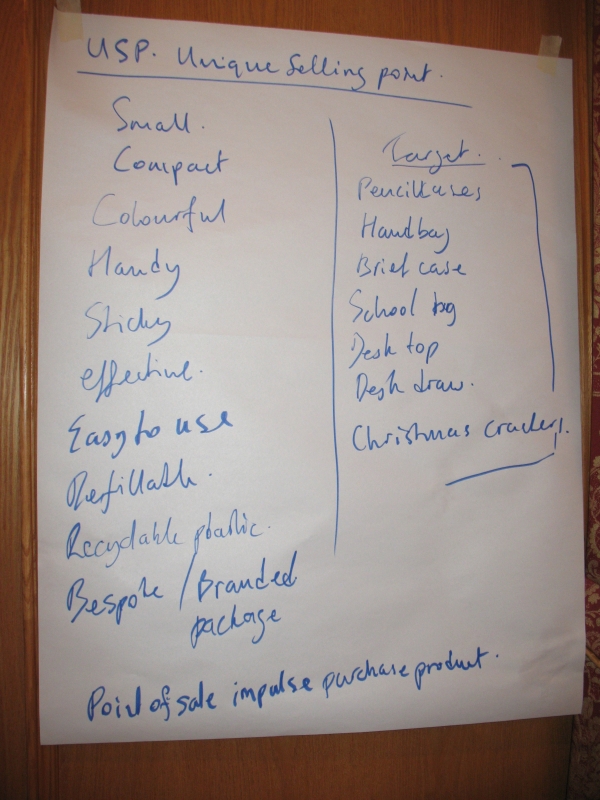 USP. Unique Selling point.
Small.
Compact
Colourful
Handy
Sticky
effective.
Easy to use
Refillable.
Recyclable plastic.
Bespoke / Branded
package
Target.
Pencilcases
Handbag
Brief case
School bg
Desk top
Desk draw.
Christmas crackers!.
Point of sale impulse purchase product.